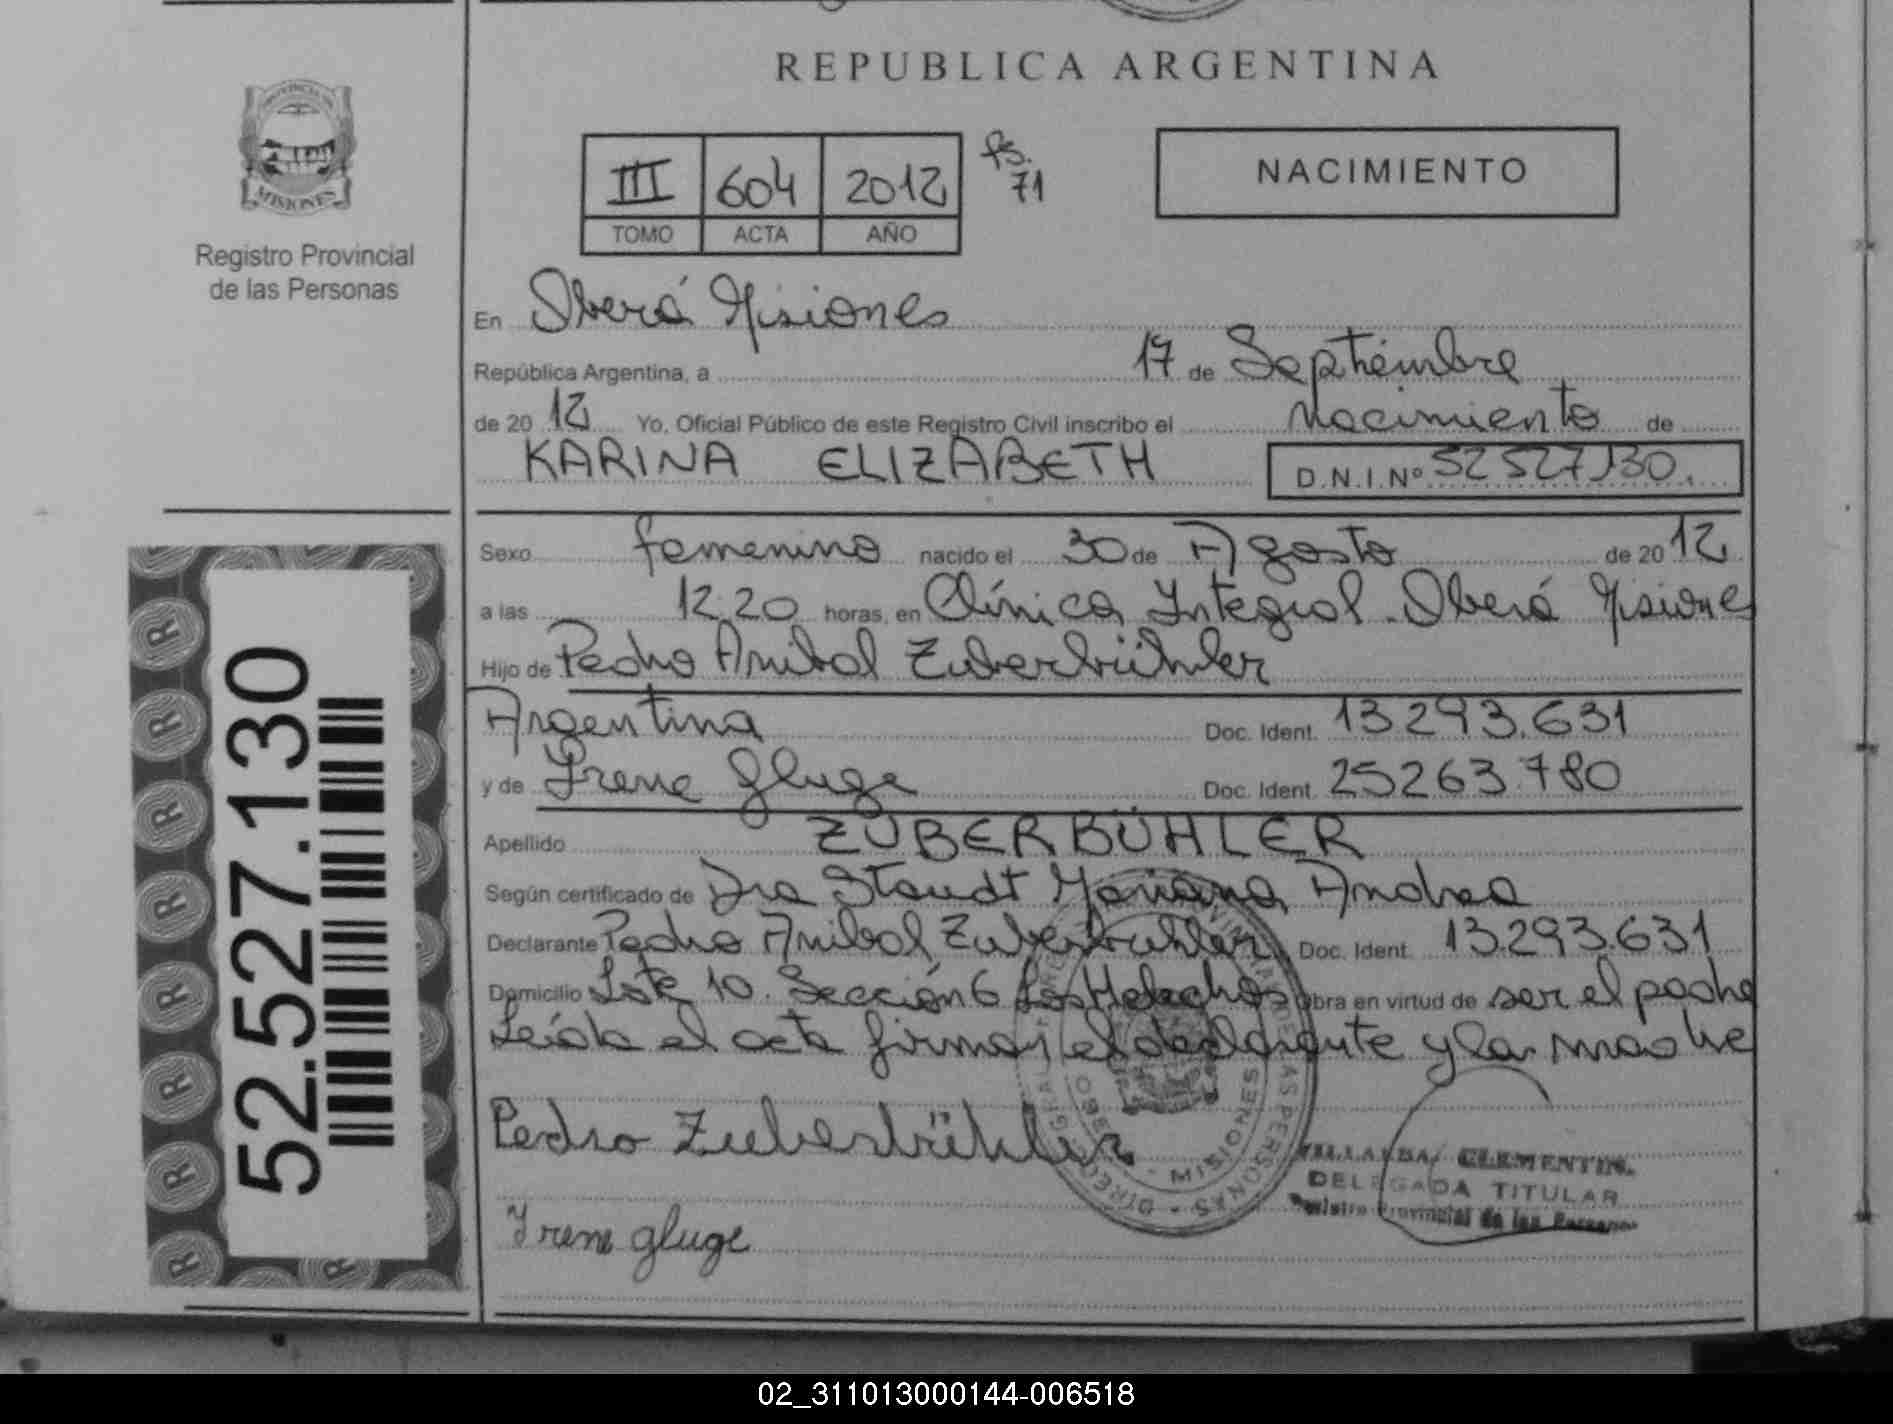 REPUBLICA ARGENTINA
PROVINCIA DE
MISIONES
Registro Provincial
de las Personas
III 604 2012 fs. 71
TOMO ACTA AÑO
NACIMIENTO
En Oberá Misiones
República Argentina, a 17 de Septiembre
de 2012 Yo, Oficial Público de este Registro Civil inscribo el Nacimiento de
KARINA ELIZABETH D.N.I.Nº 52 527130.
Sexo femenino nacido el 30 de Agosto de 2012
a las 12.20 horas, en Clínica Integral - Oberá Misiones
Hijo de Pedro Anibal Zuberbühler
Argentina Doc. Ident. 13.293.631
y de Irene Gluge Doc. Ident. 25263.780
Apellido ZUBERBÜHLER
Según certificado de Dra Staudt Mariana Andrea
Declarante Pedro Anibal Zuberbuhler Doc. Ident. 13.293.631
Domicilio Lote 10. Sección 6 Los Helechos obra en virtud de ser el padre
Leída el acta firman el declarante y la madre
Pedro Zuberbühler
MISIONES
VILLALBA, CLEMENTIN
DELEGADA TITULAR
Registro Provincial de las Personas
Irene gluge
52.527.130
02_311013000144-006518